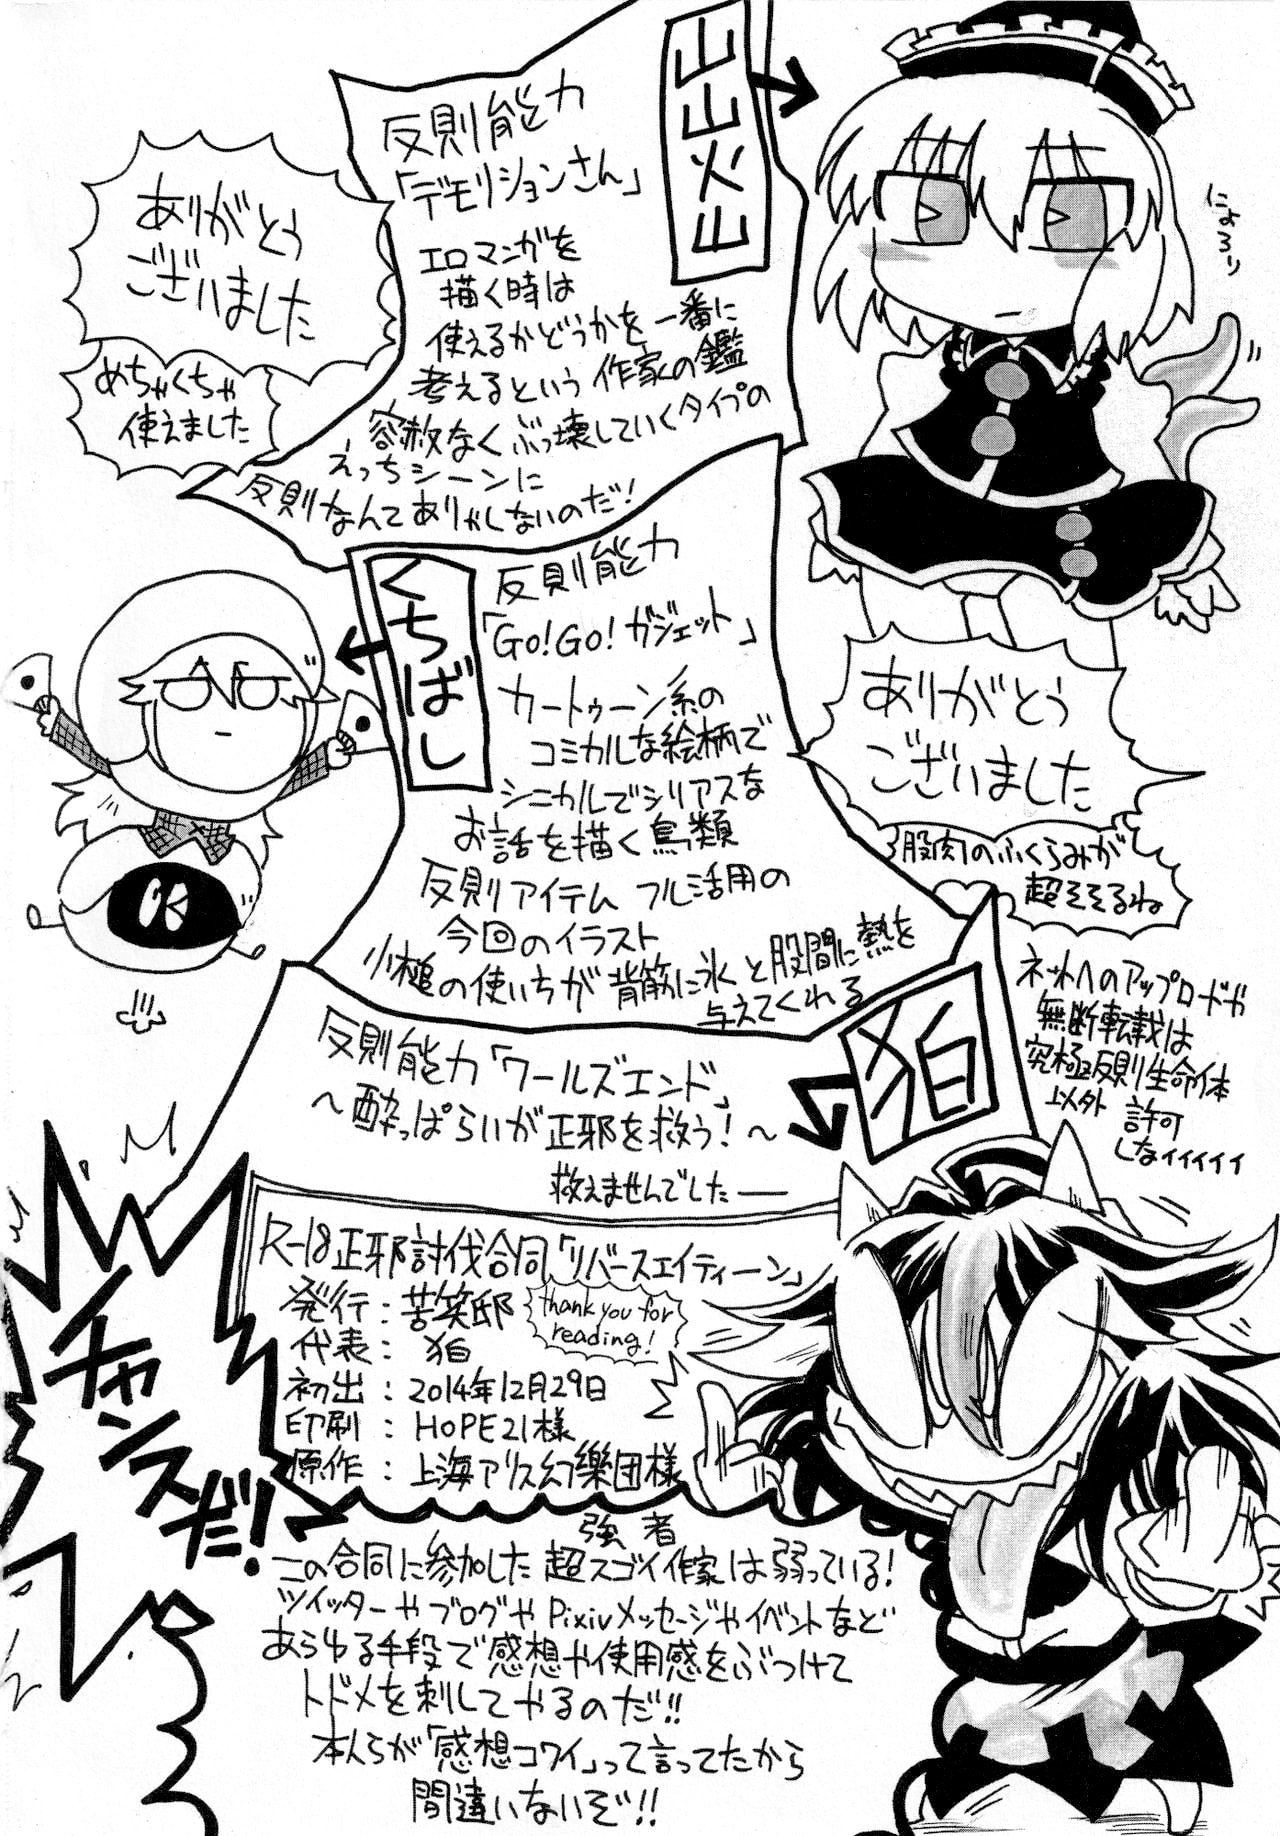 山山火山
反則能力
「デモリションさん」
エロマンガを
描く時は
使えるかどうかを一番に
考えるという作家の鑑
容赦なくぶっ壊していくタイプの
えっちシーンに
反則なんてありゃしないのだ!
ありがとう
ございました
めちゃくちゃ
使えました
にょろり
くちばし
反則能力
「Go!Go!ガジェット」
カートゥーン系の
コミカルな絵柄で
シニカルでシリアスな
お話を描く鳥類
反則アイテムフル活用の
今回のイラスト
小槌の使いちが背筋に氷と股間に熱を
与えてくれる
ありがとう
ございました
股肉のふくらみが
超そそるね
狛
反則能力「ワールズエンド」
〜酔っぱらいが正邪を救う!〜
救えませんでした──
ネットへのアップロードや
無断転載は
究極反則生命体
以外 許可
しなィィィィィ
R-18正邪討伐合同「リバースエイティーン」
発行:苦笑邸
代表:狛
初出:2014年12月29日
印刷:HOPE21様
原作:上海アリス幻樂団様
thank you for
reading!
チャンスだ!
強者
この合同に参加した超スゴイ作家は弱っている!
ツイッターやブログやPixivメッセージやイベントなど
あらゆる手段で感想や使用感をぶつけて
トドメを刺してやるのだ!!
本人らが「感想コワイ」って言ってたから
間違いないぞ!!